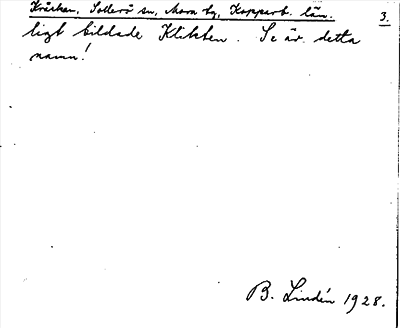 Kråckan. Sollerö sn, Mora tg, Kopparb. län. 3.
ligt bildade Klikten. Se är. detta
namn!
B. Lindén 1928.